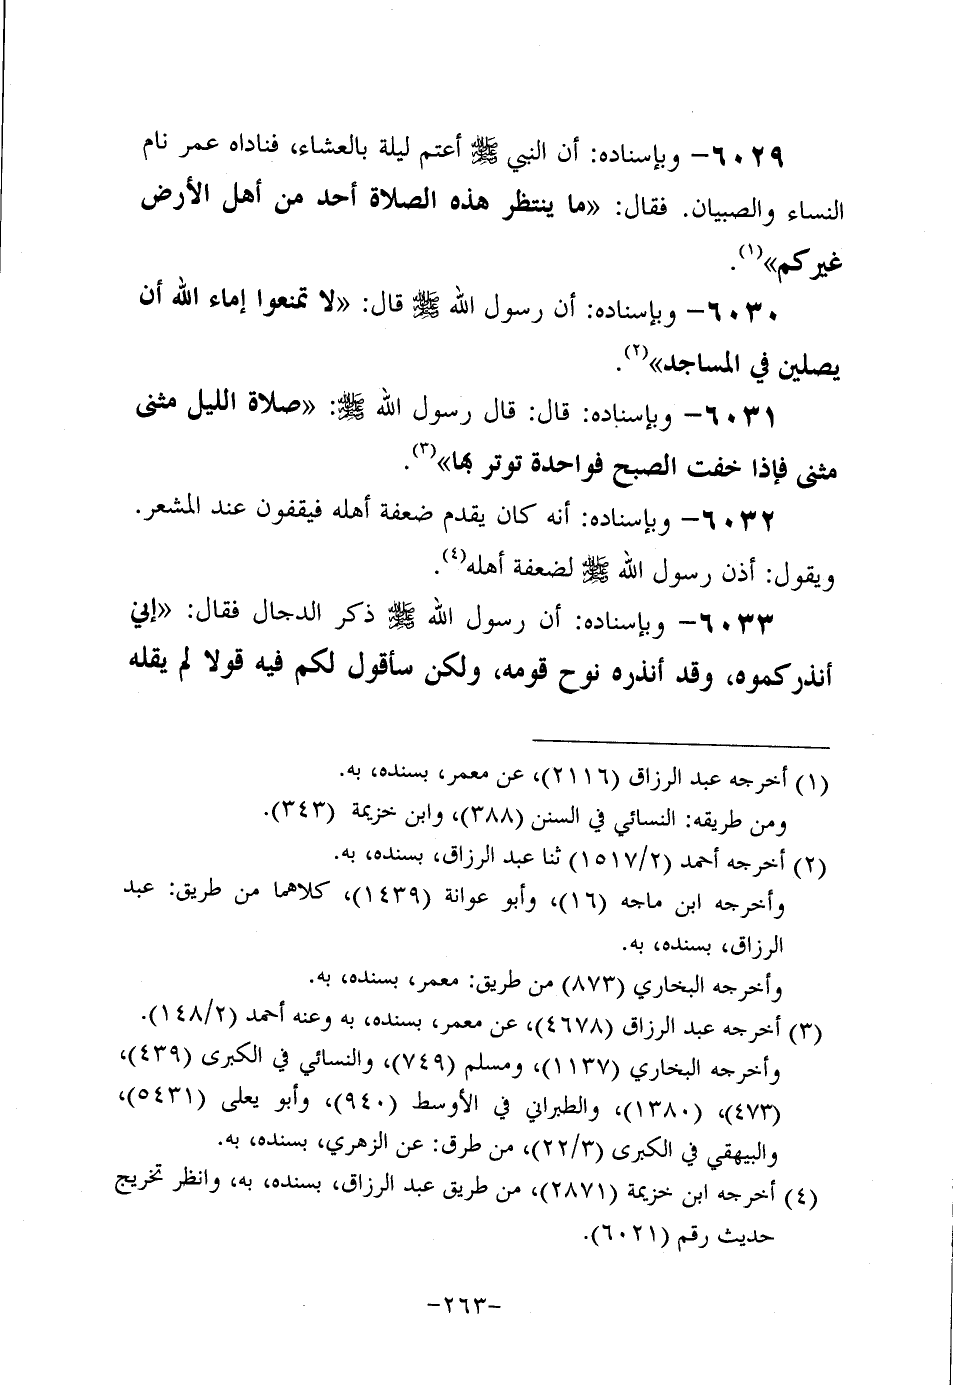 ٦٠٢٩– وبإسناده: أن النبي ﷺ أعتم ليلة بالعشاء، فناداه عمر نام
النساء والصبيان. فقال: «ما ينتظر هذه الصلاة أحد من أهل الأرض
غيركم»(١).
٦٠٣٠– وبإسناده: أن رسول الله ﷺ قال: «لا تمنعوا إماء الله أن
يصلين في المساجد»(٢).
٦٠٣١– وبإسناده: قال: قال رسول الله ﷺ: «صلاة الليل مثنى
مثنى فإذا خفت الصبح فواحدة توتر بها»(٣).
٦٠٣٢– وبإسناده: أنه كان يقدم ضعفة أهله فيقفون عند المشعر.
ويقول: أذن رسول الله ﷺ لضعفة أهله(٤).
٦٠٣٣– وبإسناده: أن رسول الله ﷺ ذكر الدجال فقال: «إني
أنذركموه، وقد أنذره نوح قومه، ولكن سأقول لكم فيه قولا لم يقله
(١) أخرجه عبد الرزاق (٢١١٦)، عن معمر، بسنده، به.
ومن طريقه: النسائي في السنن (٣٨٨)، وابن خزيمة (٣٤٣).
(٢) أخرجه أحمد (١٥١٧/٢) ثنا عبد الرزاق، بسنده، به.
وأخرجه ابن ماجه (١٦)، وأبو عوانة (١٤٣٩)، كلاهما من طريق: عبد
الرزاق، بسنده، به.
وأخرجه البخاري (٨٧٣) من طريق: معمر، بسنده، به.
(٣) أخرجه عبد الرزاق (٤٦٧٨)، عن معمر، بسنده، به وعنه أحمد (١٤٨/٢).
وأخرجه البخاري (١١٣٧)، ومسلم (٧٤٩)، والنسائي في الكبرى (٤٣٩)،
(٤٧٣)، (١٣٨٠)، والطبراني في الأوسط (٩٤٠)، وأبو يعلى (٥٤٣١)،
والبيهقي في الكبرى (٢٢/٣)، من طرق: عن الزهري، بسنده، به.
(٤) أخرجه ابن خزيمة (٢٨٧١)، من طريق عبد الرزاق، بسنده، به، وانظر تخريج
حديث رقم (٦٠٢١).
–٢٦٣–